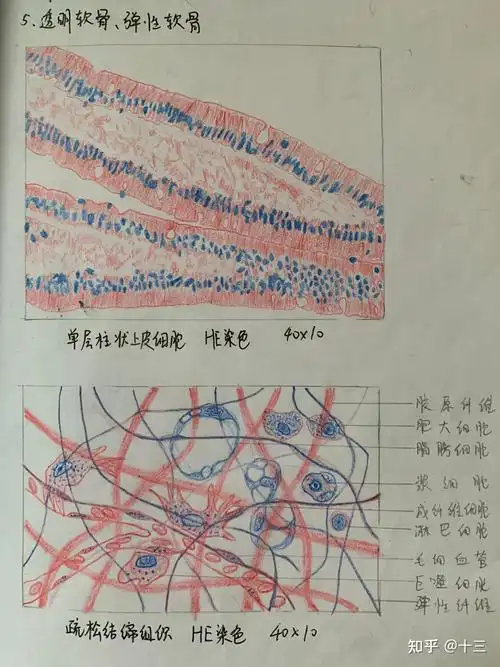 5.透明软骨、弹性软骨
单层柱状上皮细胞 HE染色 40×10
胶原纤维
肥大细胞
脂肪细胞
浆细胞
成纤维细胞
淋巴细胞
毛细血管
巨噬细胞
弹性纤维
疏松结缔组织 HE染色 40×10
知乎 @十三